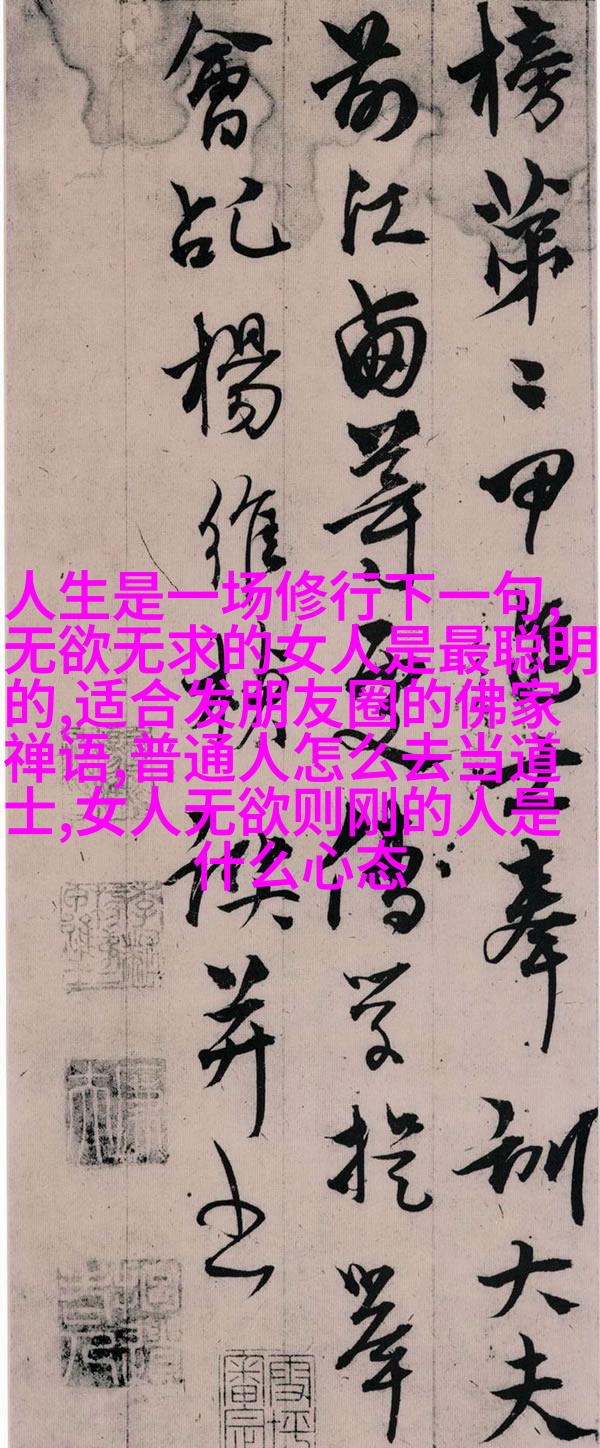 榜第二甲進士奉訓大夫
前江西等處儒學提舉
會稽楊維楨譔并書
人生是一场修行下一句,
无欲无求的女人是最聪明
的,适合发朋友圈的佛家
禅语,普通人怎么去当道
士,女人无欲则刚的人是
什么心态